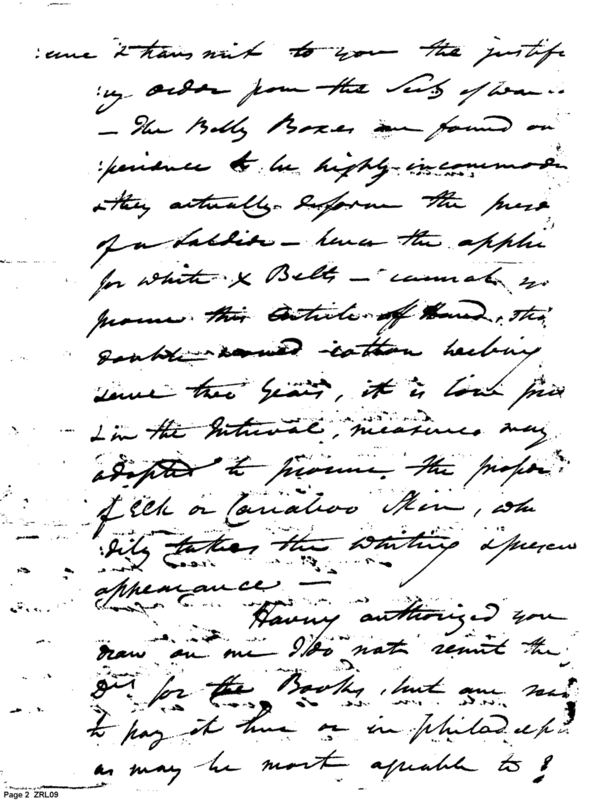 :ceive & transmit to you the justify
:ing order from the Secty of War
— The Belly Boxes are found on
:perience to be highly incommod
& they actually deform the pers
of a Soldier — hence the appli
for white X Belts — cannot yo
procure this Article of
double cotton webbing
serve two Years, it is low pri
& in the Interval, measures may
adopted to procure the proper
of Elk or Cariaboo Skin, wh
:dily takes the whiting & preser
appearance —
Having authorized you
draw on me I do not remit the
for the Books, but am rea
to pay it here or in philadelp
as may be most agreable to
Page 2 ZRL09